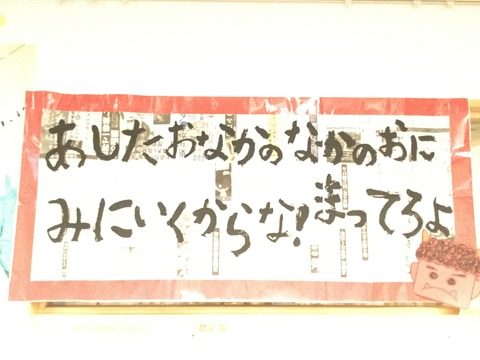 あしたおなかのなかのおに
みにいくからな!まってろよ